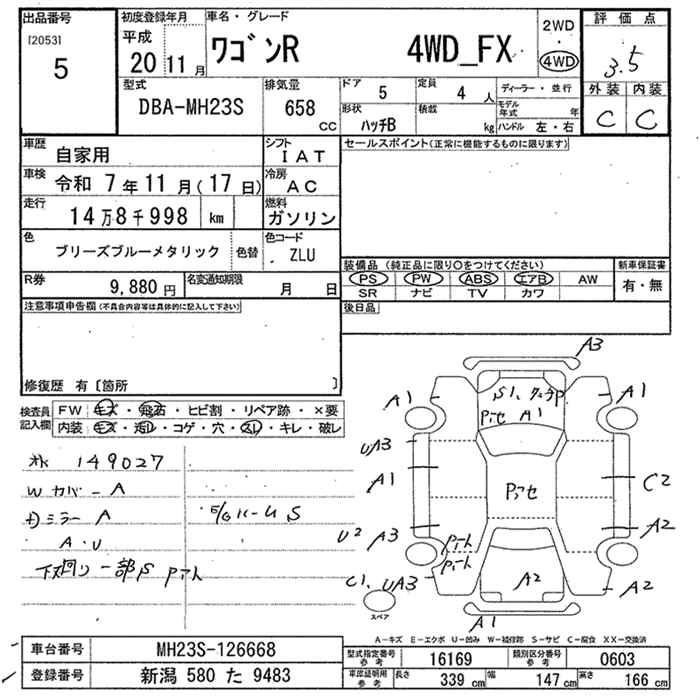 出品番号
[2053]
5
初度登録年月
平成
20 11 月
車名・グレード
ワゴンR 4WD_FX
2WD
4WD
評価点
3.5
外装 内装
C C
型式
DBA-MH23S
排気量
658 cc
ドア 5
定員 4 人
形状 ハッチB
積載 kg
ディーラー・並行
モデル年式 年
ハンドル 左・右
車歴 自家用
シフト IAT
車検 令和 7年11月(17日)
冷房 AC
走行 14万8千998 km
燃料 ガソリン
色 ブリーズブルーメタリック 色替
色コード ZLU
R券 9,880 円
名変通知期限 月 日
セールスポイント(正常に機能するものに限ります)
装備品 (純正品に限り○をつけてください)
PS PW ABS エアB AW
SR ナビ TV カワ
新車保証書
有・無
後日品
注意事項申告欄(不具合内容等は具体的に記入して下さい)
修復歴 有〔箇所 〕
検査員記入欄
FW キズ・飛石・ヒビ割・リペア跡・×要
内装 キズ・汚レ・コゲ・穴・スレ・キレ・破レ
149027
W カバーA
ミラー A
A・U
下廻り一部S
A3
A1
A1
A1
UA3
A1
C2
U2 A3
A2
C1. UA3
A2
A2
A1
スペア
A-キズ E-エクボ U-凹み W-補修跡 S-サビ C-腐食 XX-交換済
車台番号 MH23S-126668
登録番号 新潟 580 た 9483
型式指定番号 参考 16169
類別区分番号 参考 0603
車庫証明用 参考 長さ 339 cm 幅 147 cm 高さ 166 cm